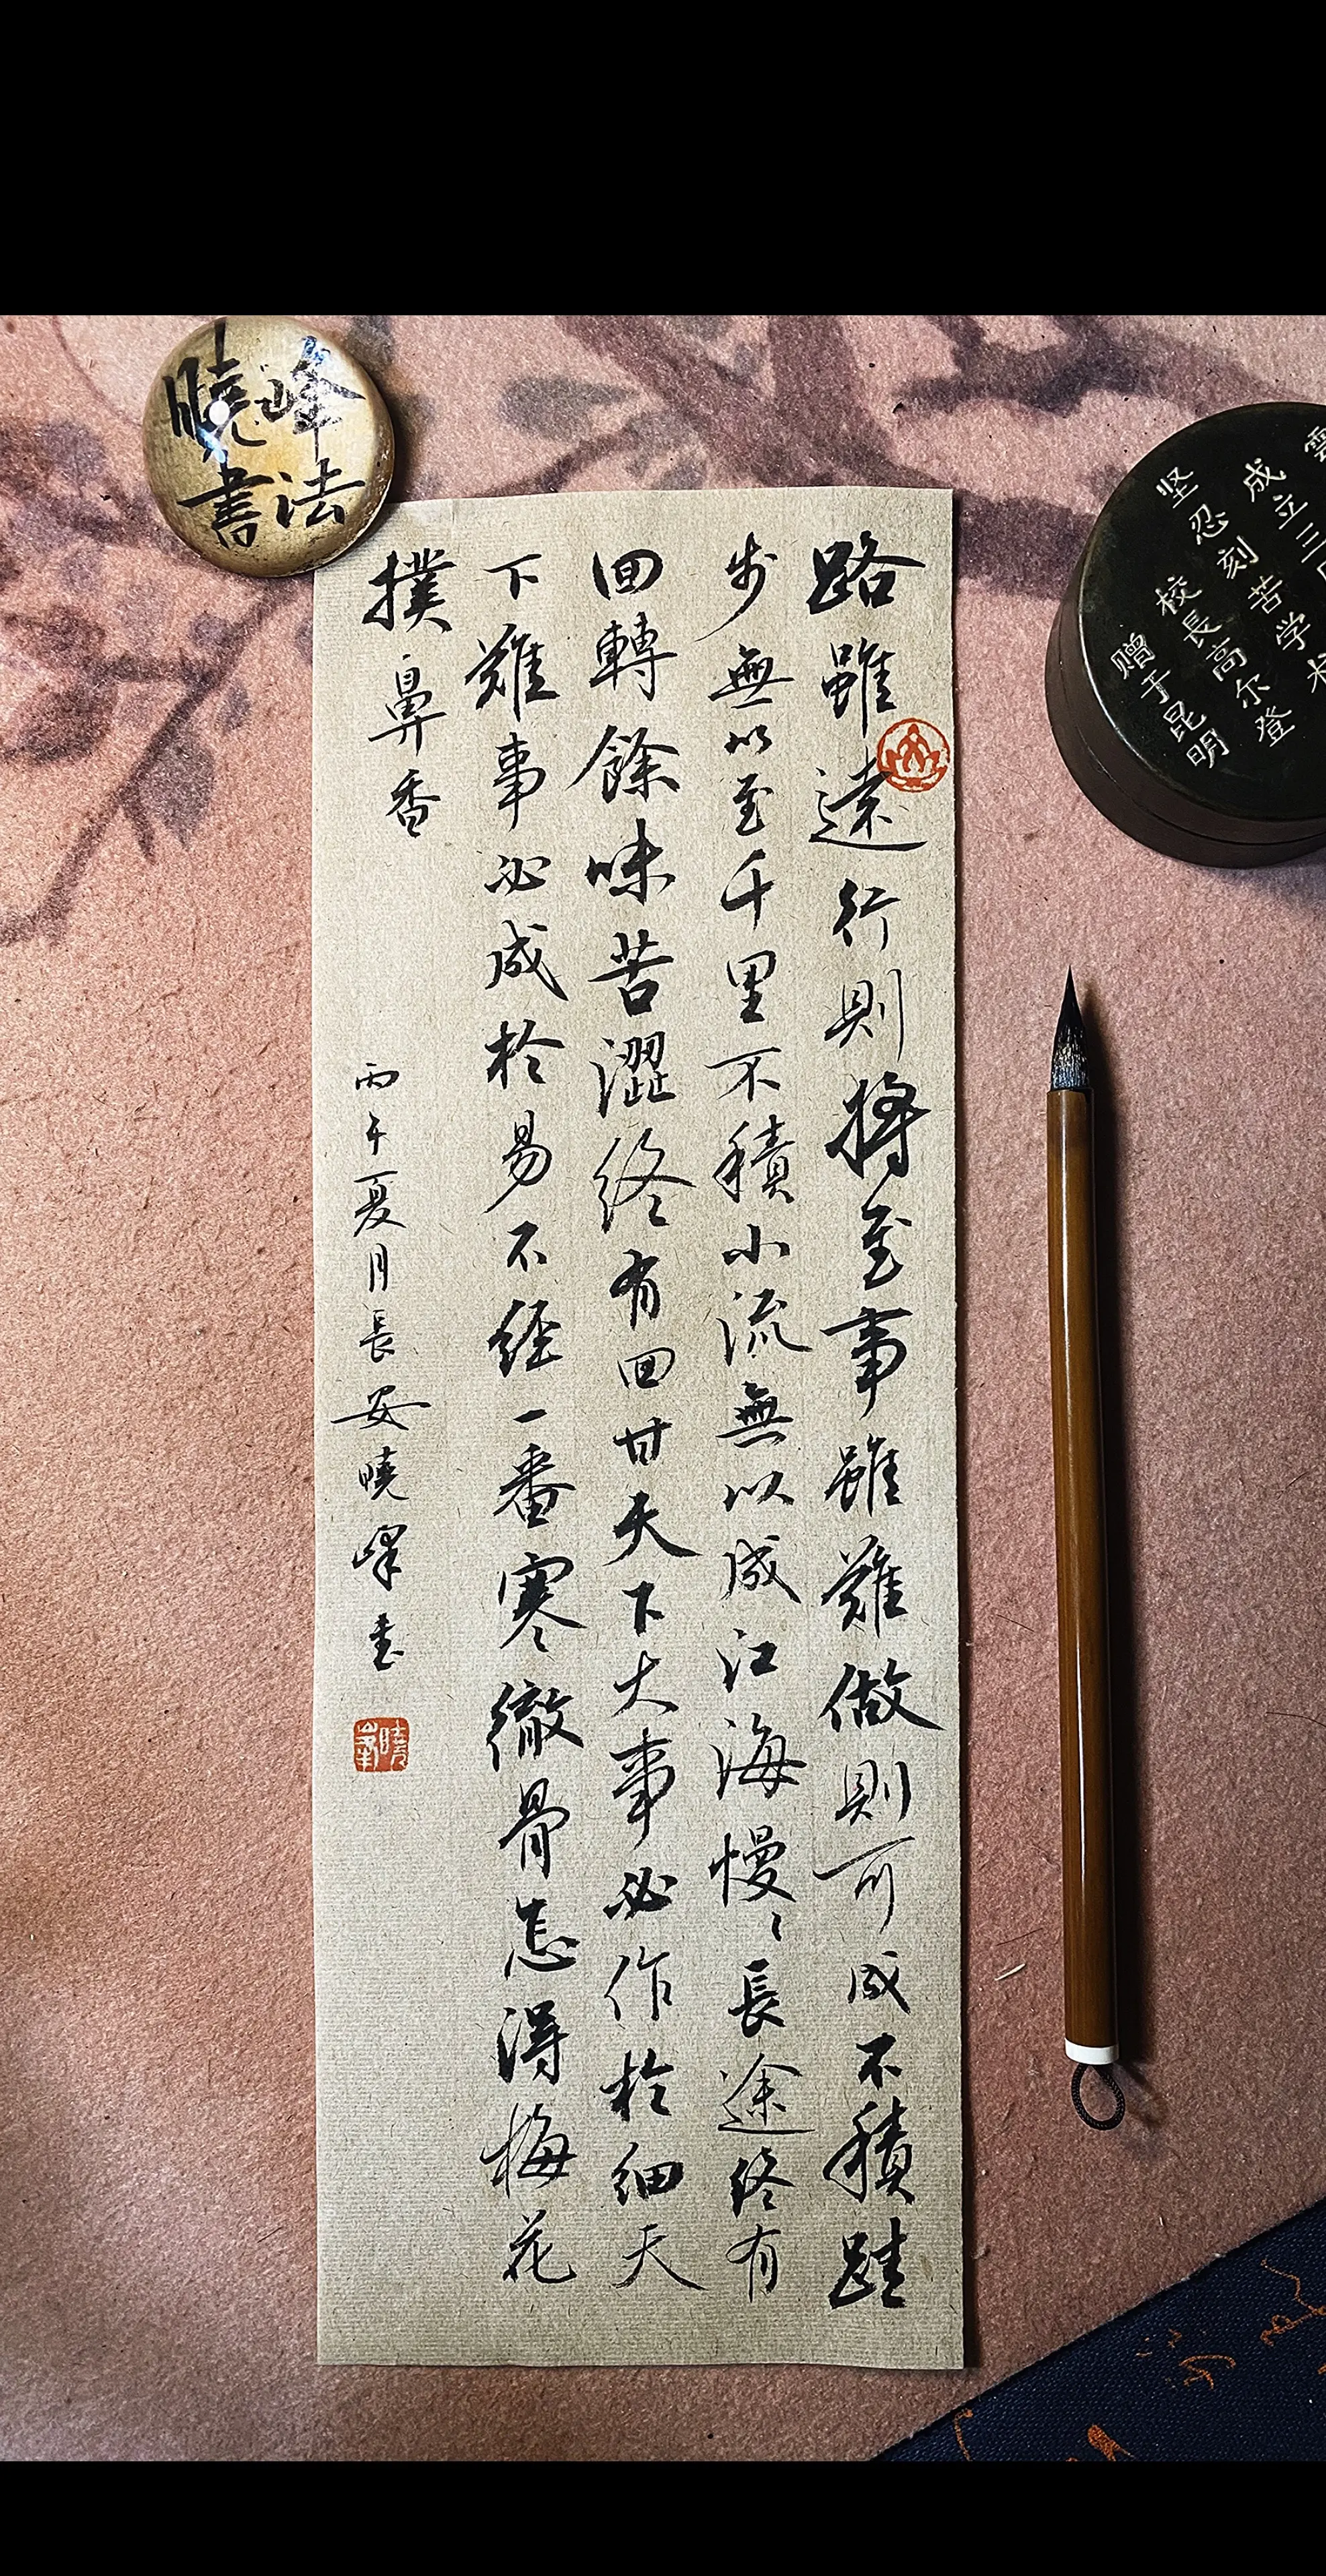 路雖遠行則將至事雖難做則可成不積跬
步無以至千里不積小流無以成江海慢〻長途終有
回轉餘味苦澀終有回甘天下大事必作於細天
下難事必成於易不經一番寒徹骨怎得梅花
撲鼻香
丙午夏月長安曉峰書
曉峰
曉峰
書法
雲
成立三
坚忍刻苦学术
校長高尔登
赠于昆明